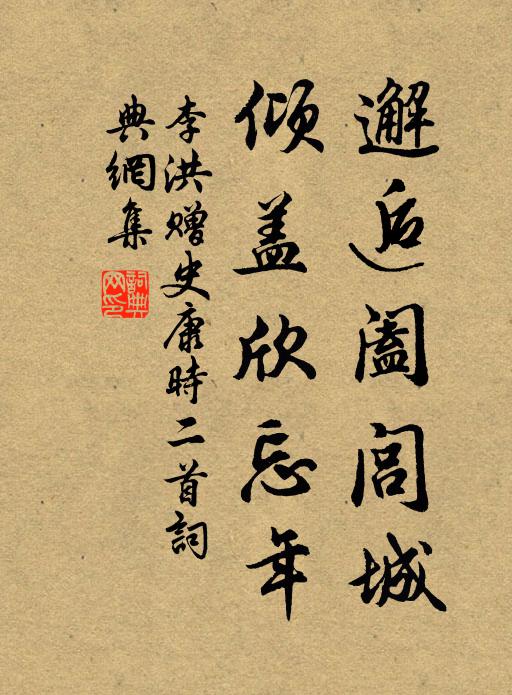 邂逅阖闾城
倾盖欣忘年
李洪赠史康時二首詞
典網集
詞典网印